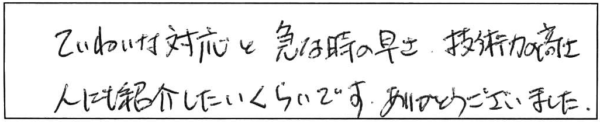 ていねいな対応と 急な時の早さ. 技術力の高さ
人にも紹介したいくらいです. ありがとうございました.